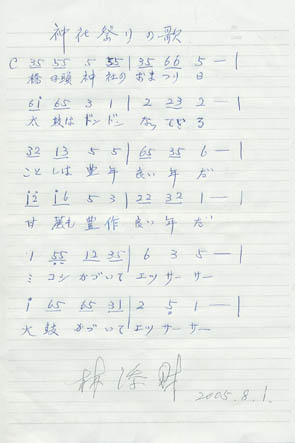 神社祭りの歌
C 35 55 5 55 | 35 66 5 — |
橋仔頭神社のおまつり日
6i 65 3 1 | 2 23 2 — |
太鼓はドンドンなってる
32 13 5 5 | 65 35 6 — |
ことしは豊年良い年だ
i2 i6 5 3 | 22 32 1 — |
甘蔗も豊作良い年だ
1 55 12 35 | 6 3 5 — |
ミコシかついてエッサーサー
i 65 65 31 | 2 5 1 — |
太鼓かついてエッサーサー
2005.8.1.